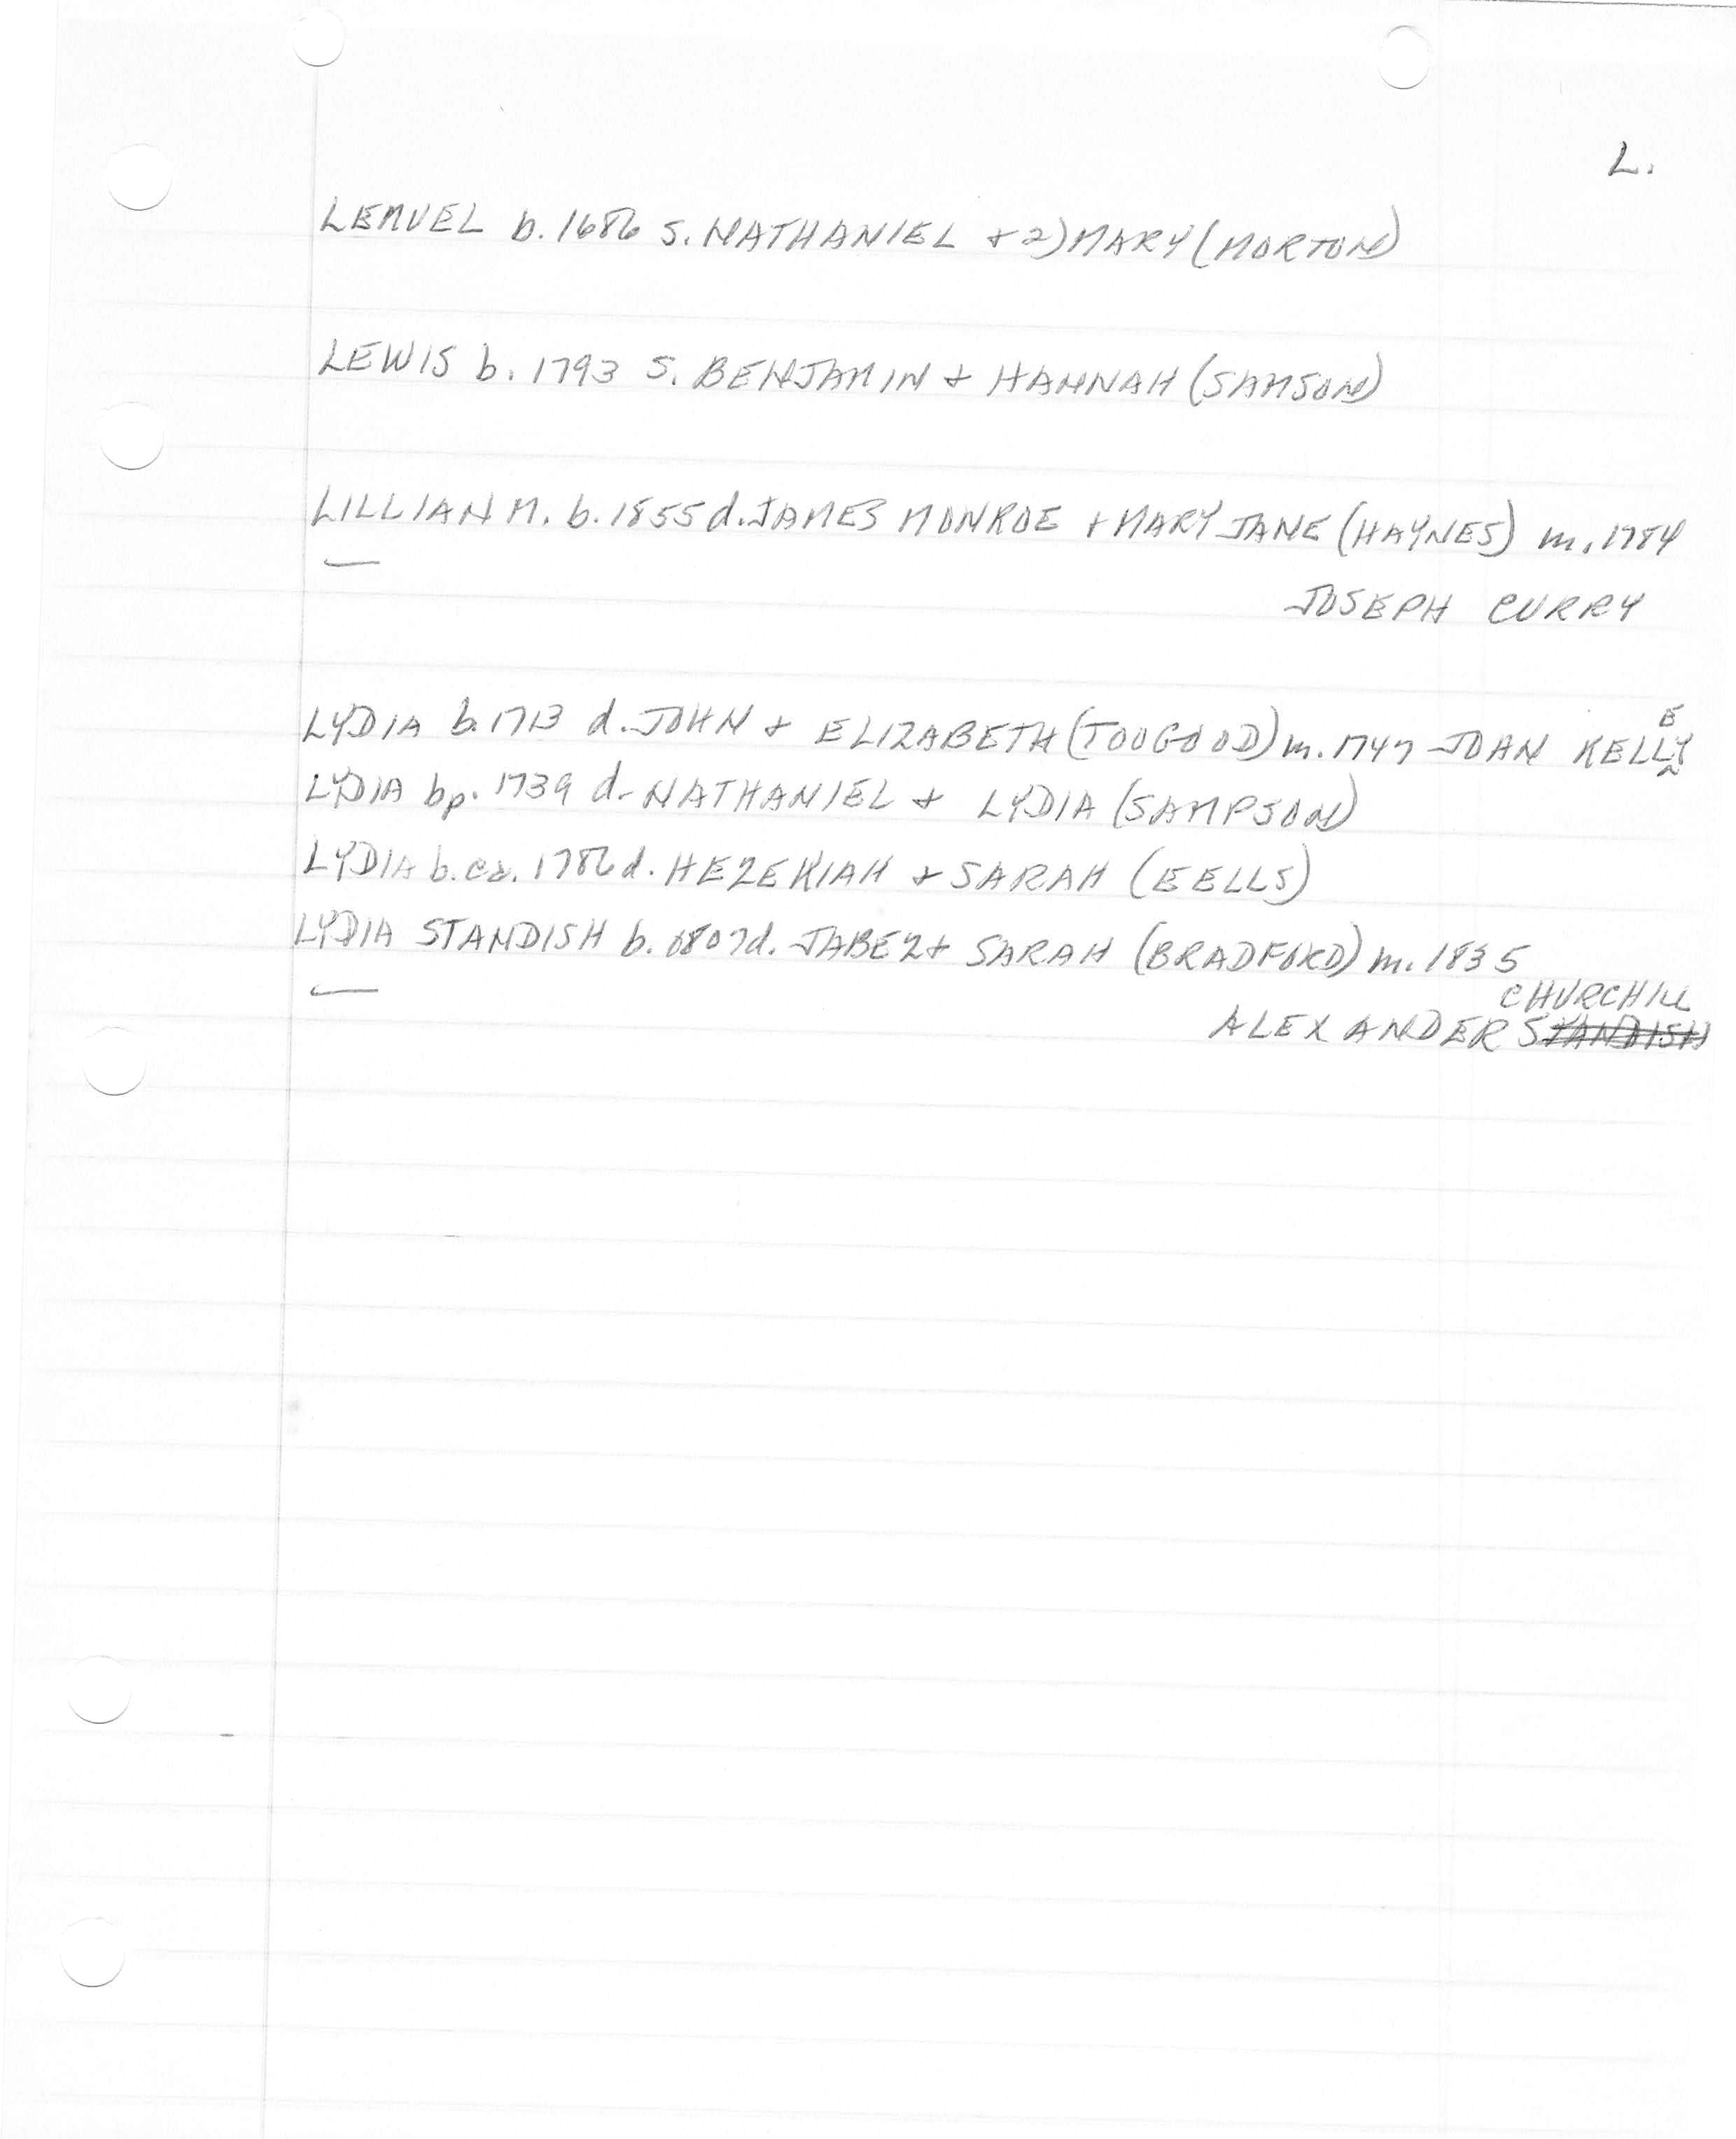 L.
LEMUEL b. 1686 S. NATHANIEL + 2) MARY (MORTON)
LEWIS b. 1793 S. BENJAMIN + HANNAH (SAMSON)
LILLIAN M. b. 1855 d. JAMES MONROE + MARY JANE (HAYNES) m. 1784
JOSEPH CURRY
LYDIA b. 1713 d. JOHN + ELIZABETH (TOOGOOD) m. 1747 JOHN KELLEY
LYDIA bp. 1739 d. NATHANIEL + LYDIA (SAMPSON)
LYDIA b. ca. 1786 d. HEZEKIAH + SARAH (EELLS)
LYDIA STANDISH b. 1807 d. JABEZ + SARAH (BRADFORD) m. 1835
CHURCHILL
ALEXANDER STANDISH